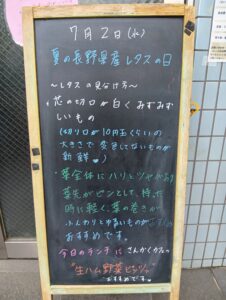 7月2日(水)
夏の長野県産レタスの日
～レタスの見分け方～
・芯の切口が白くみずみず
しいもの
(切り口が10円玉くらいの
大きさで変色してないものが
新鮮
・葉全体にハリとツヤがあり
葉先がピンとして、持った
時に軽く、葉の巻きが
ふんわりとゆるいものが
おすすめです。
今日のランチに さんかくカフェの
生ハム野菜ピンツァ
おすすめです